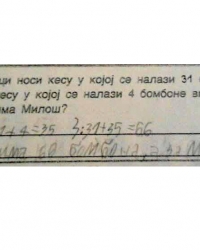 ци носи кесу у којој се налази 31
кесу у којој се налази 4 бомбоне
ма Милош?
1+4=35 31+35=66
бомбона, а